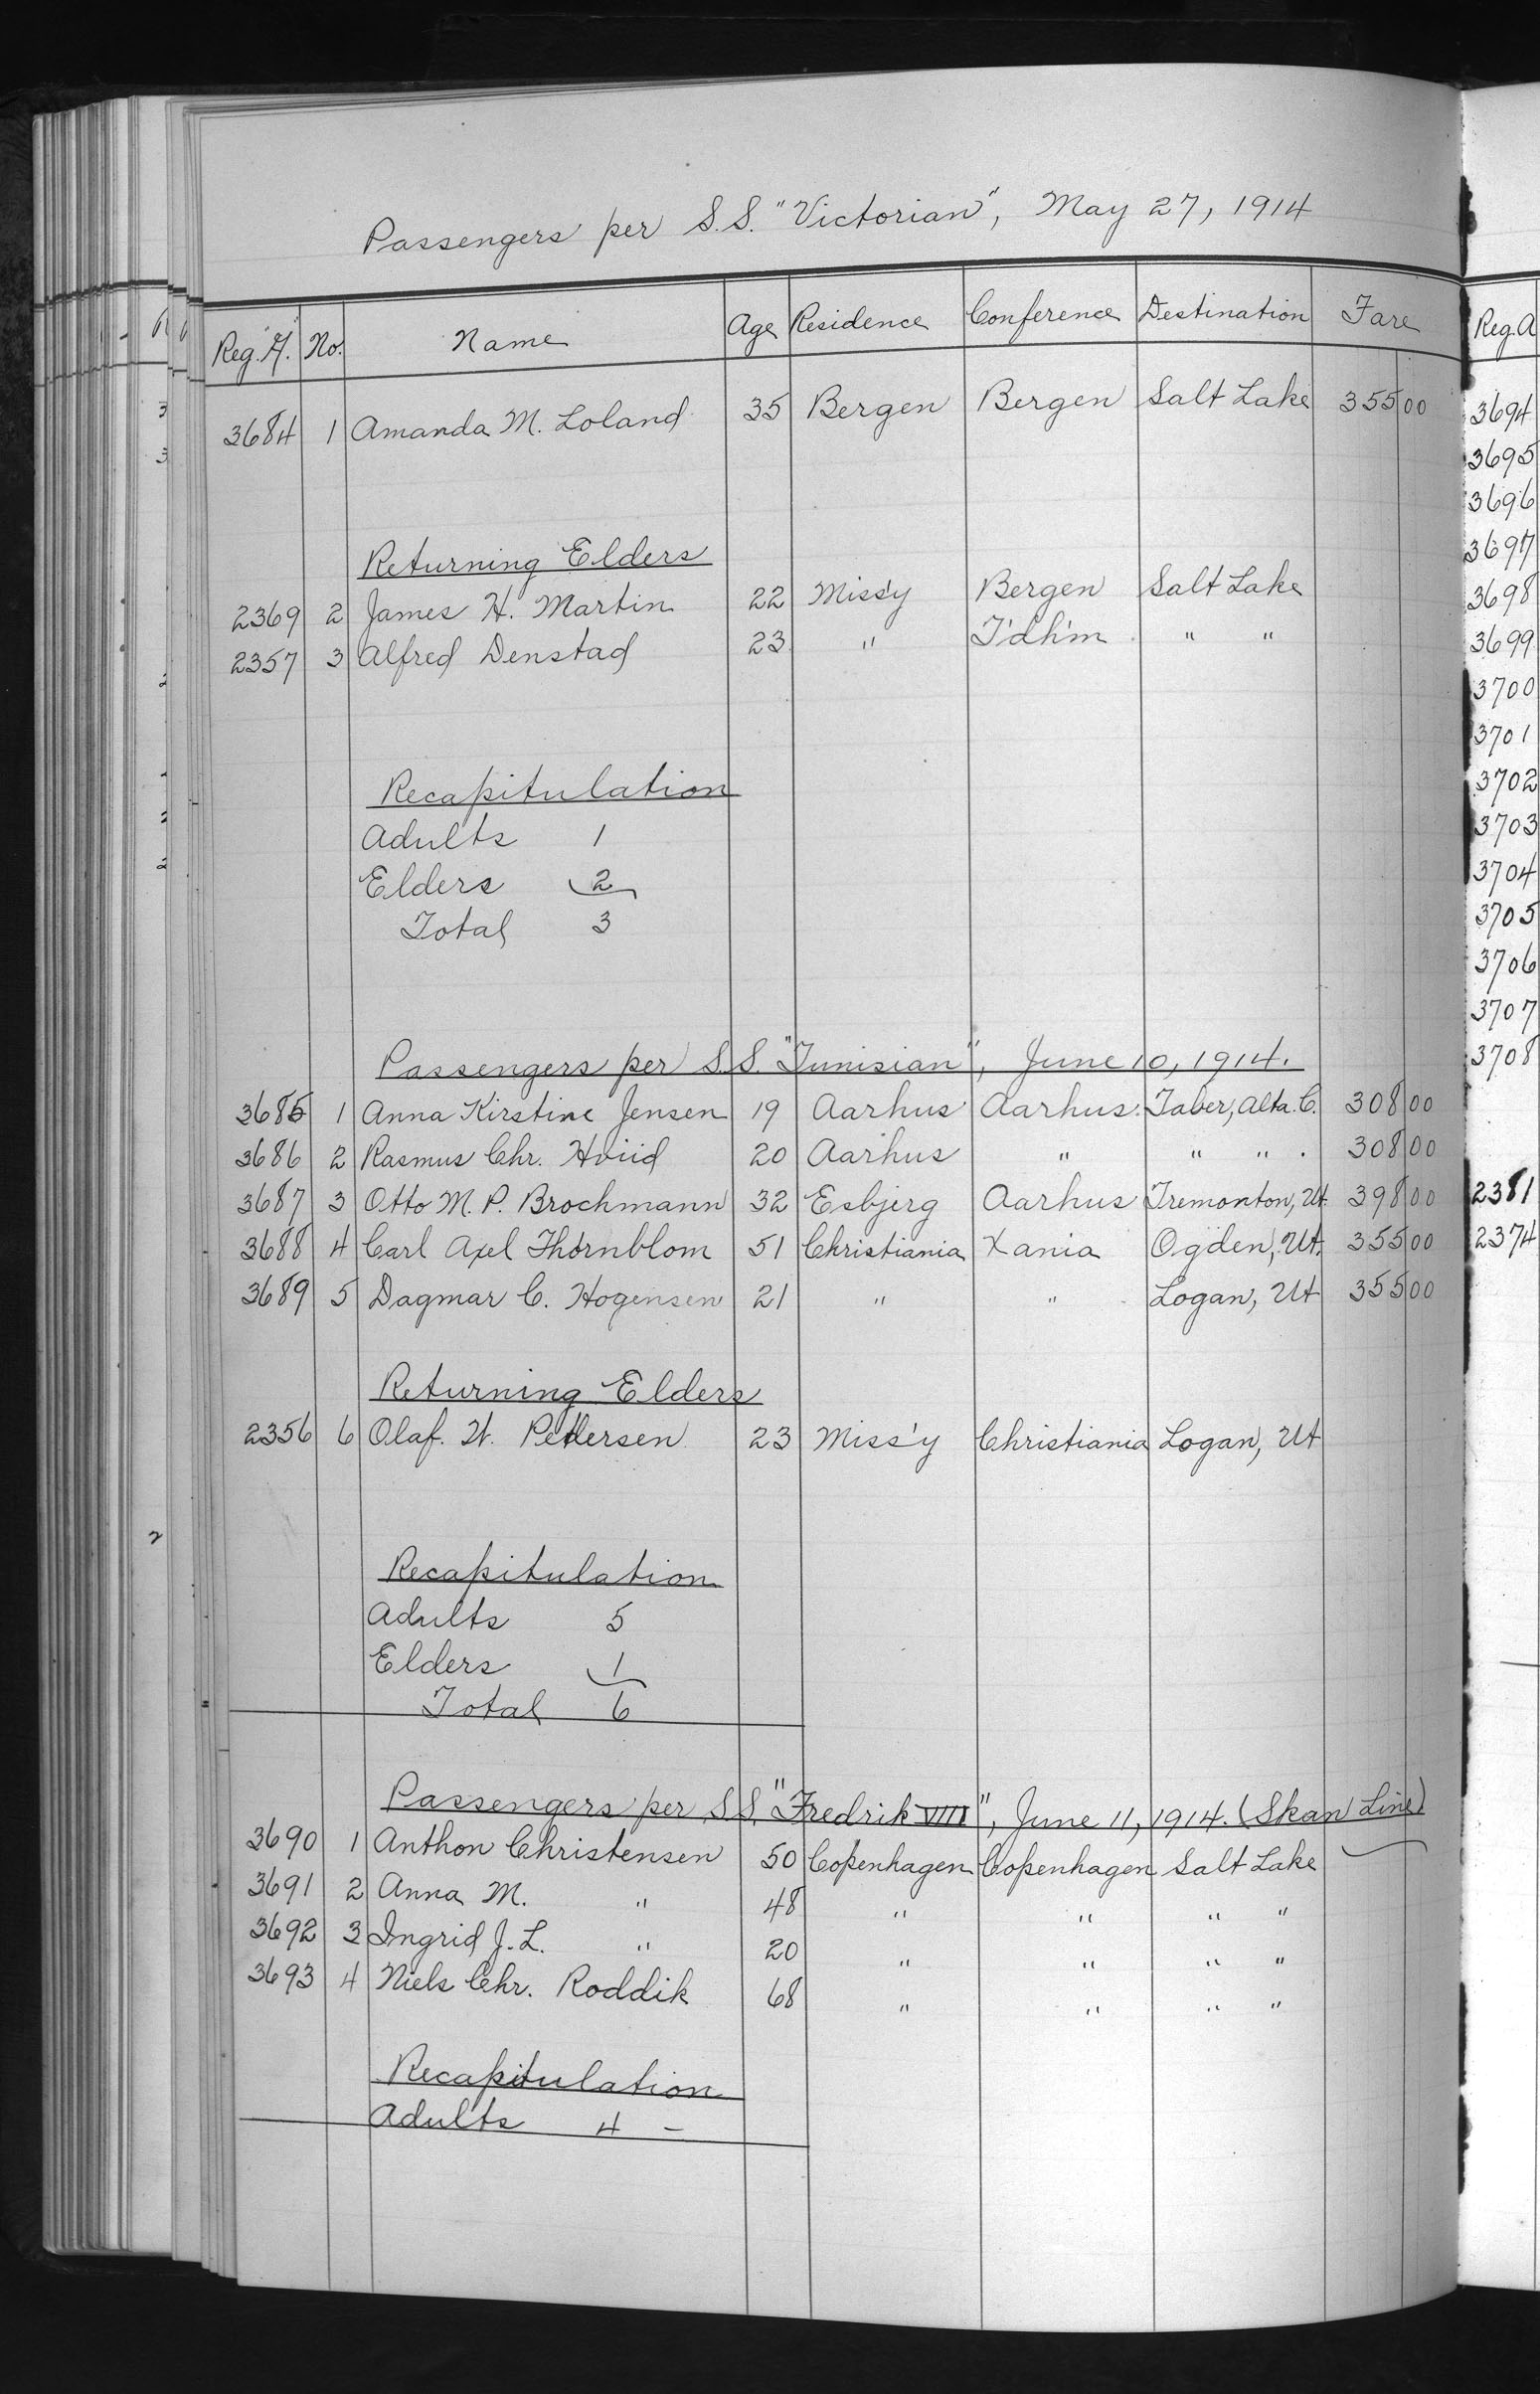 Passengers per S.S. "Victorian", May 27, 1914
Reg. A. No. Name Age Residence Conference Destination Fare
3684 1 Amanda M. Loland 35 Bergen Bergen Salt Lake 355 00
Returning Elders
2369 2 James H. Martin 22 Miss'y Bergen Salt Lake
2357 3 Alfred Denstad 23 " T'dh'm " "
Recapitulation
Adults 1
Elders 2
Total 3
Passengers per S.S. "Tunisian", June 10, 1914.
3685 1 Anna Kirstine Jensen 19 Aarhus Aarhus Taber, Alta. C. 308 00
3686 2 Rasmus Chr. Hviid 20 Aarhus " " " 308 00
3687 3 Otto M. P. Brochmann 32 Esbjerg Aarhus Tremonton, Ut. 398 00
3688 4 Carl Axel Thornblom 51 Christiania Xania Ogden, Ut. 355 00
3689 5 Dagmar C. Hogensen 21 " " Logan, Ut 355 00
Returning Elders
2356 6 Olaf. W. Pedersen 23 Miss'y Christiania Logan, Ut
Recapitulation
Adults 5
Elders 1
Total 6
Passengers per S.S. "Fredrik VIII", June 11, 1914. (Skan Line)
3690 1 Anthon Christensen 50 Copenhagen Copenhagen Salt Lake
3691 2 Anna M. " 48 " " " "
3692 3 Ingrid J. L. " 20 " " " "
3693 4 Niels Chr. Roddik 68 " " " "
Recapitulation
Adults 4 –
Reg. A
3694
3695
3696
3697
3698
3699
3700
3701
3702
3703
3704
3705
3706
3707
3708
2381
2374